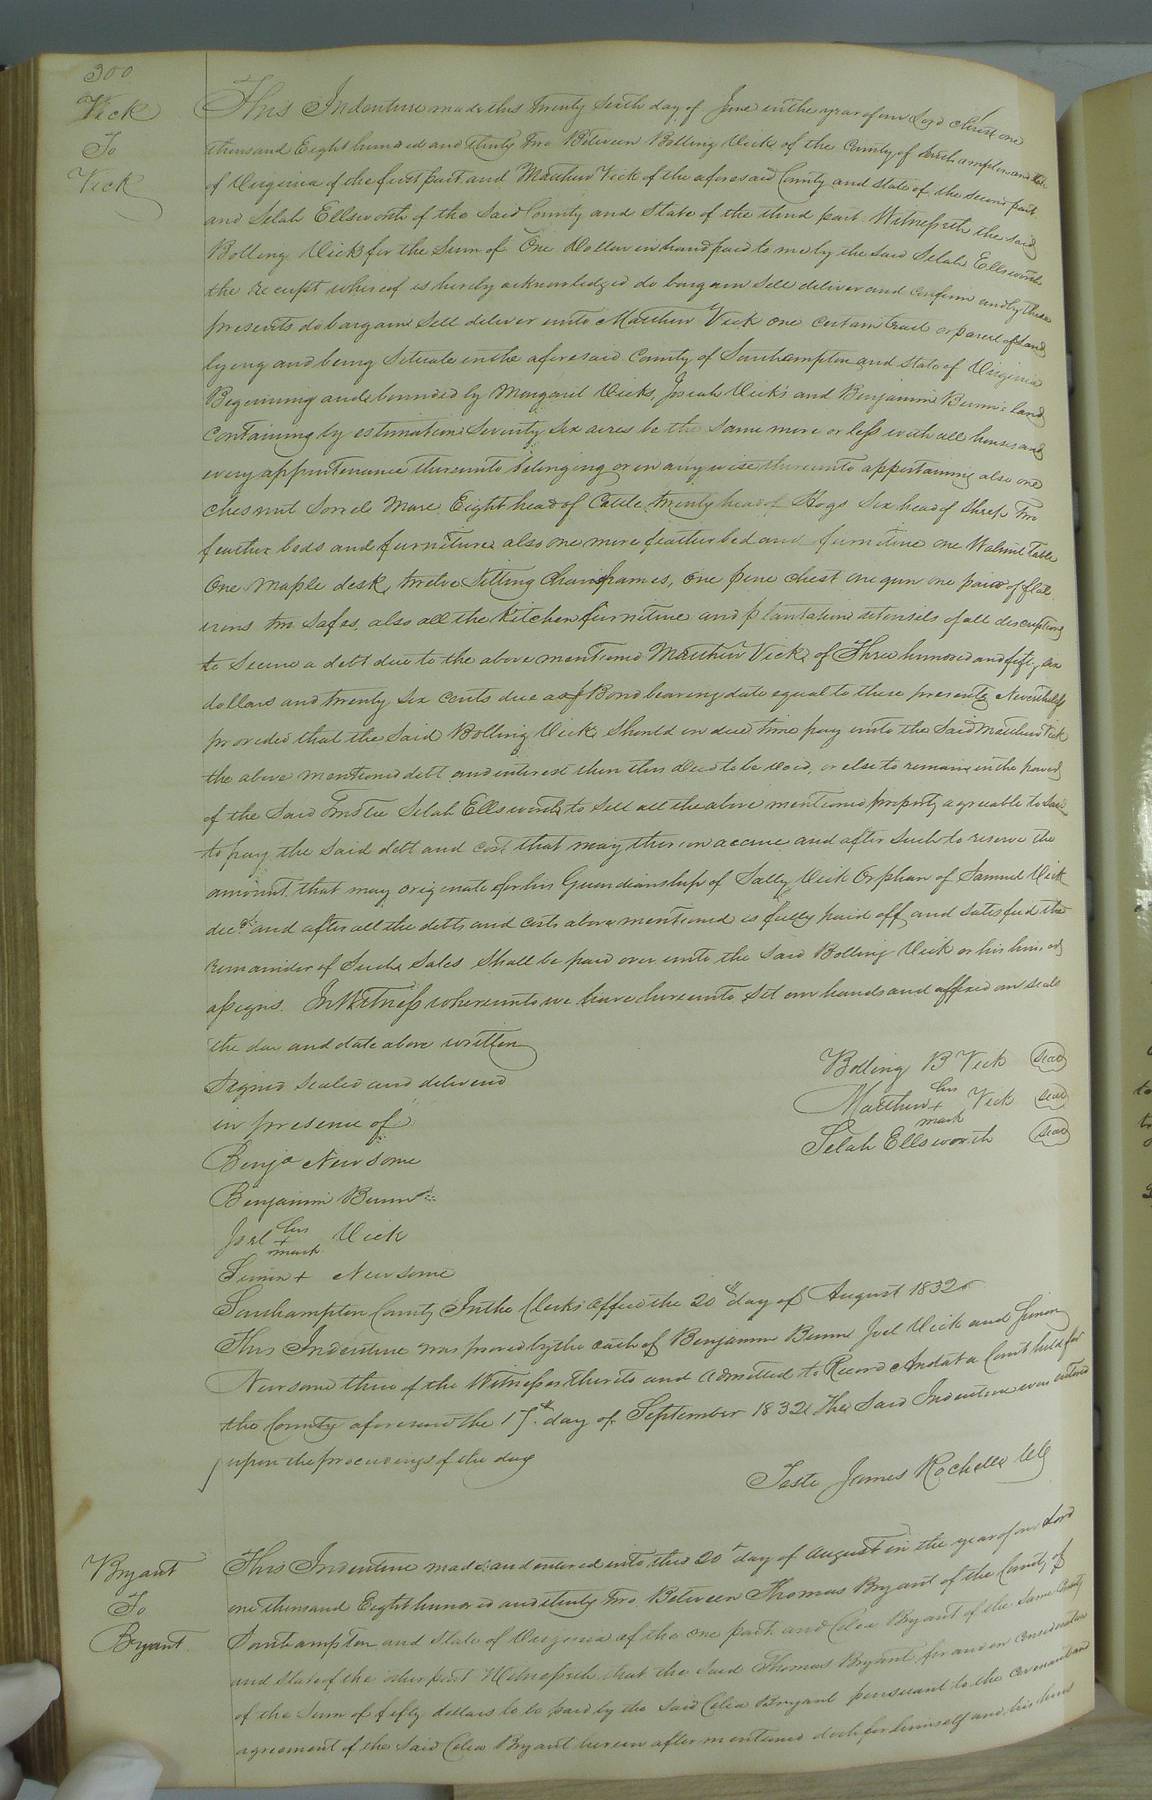 300
Vick
To
Vick
This Indenture made this twenty sixth day of June in the year of our Lord Christ one
thousand Eight hundred and thirty two Between Bolling Vick of the County of Southampton and State
of Virginia of the first part and Matthew Vick of the aforesaid County and State of the second part
and Selah Ellsworth of the Said County and State of the third part Witnesseth the said
Bolling Vick for the Sum of One Dollar in hand paid to me by the said Selah Ellsworth
the receipt whereof is hereby acknowledged do bargain sell deliver and confirm and by these
presents do bargain Sell deliver unto Matthew Vick one certain tract or parcel of land
lying and being Situate in the aforesaid County of Southampton and State of Virginia
Begining and bounded by Margaret Vicks, Josiah Vick's and Benjamin Bunn's land
containing by estimation Seventy Six acres be the Same more or less with all houses and
every appurtenance thereunto belonging or in any wise thereunto appertaining also one
chesnut Sorrel Mare Eight head of Cattle twenty head of Hogs Six head of Sheep two
feather beds and furniture also one more feather bed and furniture one Walnut Table
One Maple desk, twelve Sitting Chair frames, One pine chest one gun one pair of flat
irons two Safes, also all the Kitchen furniture and plantation utensils of all descriptions
to Secure a debt due to the above mentioned Matthew Vick of Three hundred and fifty six
dollars and twenty Six cents due as Bond bearing date equal to these presents Nevertheless
provided that the Said Bolling Vick Should in due time pay unto the Said Matthew Vick
the above mentioned debt and interest then this Deed to be void, or else to remain in the power
of the Said Trustee Selah Ellsworth to Sell all the above mentioned property agreable to Law
to pay the Said debt and cost that may thereon accrue and after Such to reserve the
amount that may originate for his Guardianship of Sally Vick Orphan of Samuel Vick
decd. and after all the debts and costs above mentioned is fully paid off and Satisfied the
remainder of Such Sales Shall be paid over unto the Said Bolling Vick or his heirs or
assigns. In Witness whereunto we have hereunto Set our hands and affixed our seals
the day and date above written
Signed Sealed and delivered
in presence of
Bolling B Vick Seal
Matthew his + mark Vick Seal
Selah Ellsworth Seal
Benja Newsome
Benjamin Bunn
Joel his + mark Vick
Simon + Newsome
Southampton County In the Clerks Office the 20th day of August 1832
This Indenture was proved by the oath of Benjamin Bunn Joel Vick and Simon
Newsome three of the Witnesses thereto and admitted to Record And at a Court held for
the County aforesaid the 17th day of September 1832 The Said Indenture was entered
upon the proceedings of the day
Teste James Rochelle CC
Bryant
To
Bryant
This Indenture made and entered into this 20th day of August in the year of our Lord
one thousand Eight hundred and thirty two Between Thomas Bryant of the County of
Southampton and State of Virginia of the one part and Celia Bryant of the Same County
and State of the other part Witnesseth that the Said Thomas Bryant for and in consideration
of the Sum of fifty dollars to be paid by the Said Celia Bryant pursuant to the covenant and
agreement of the Said Celia Bryant herein after mentioned doth for himself and his heirs